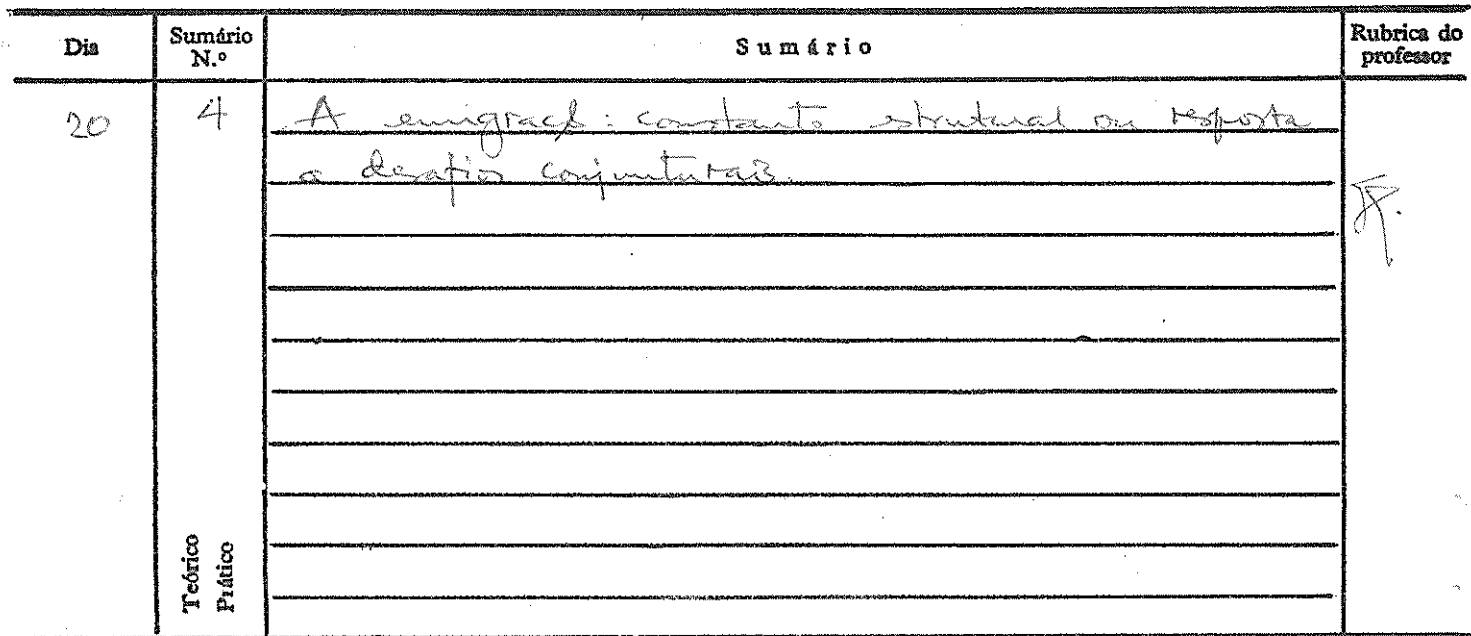 Dia
Sumário
N.º
Sumário
Rubrica do
professor
20
4
A emigração: constante estrutural ou resposta
a desafios conjunturais.
Teórico
Prático